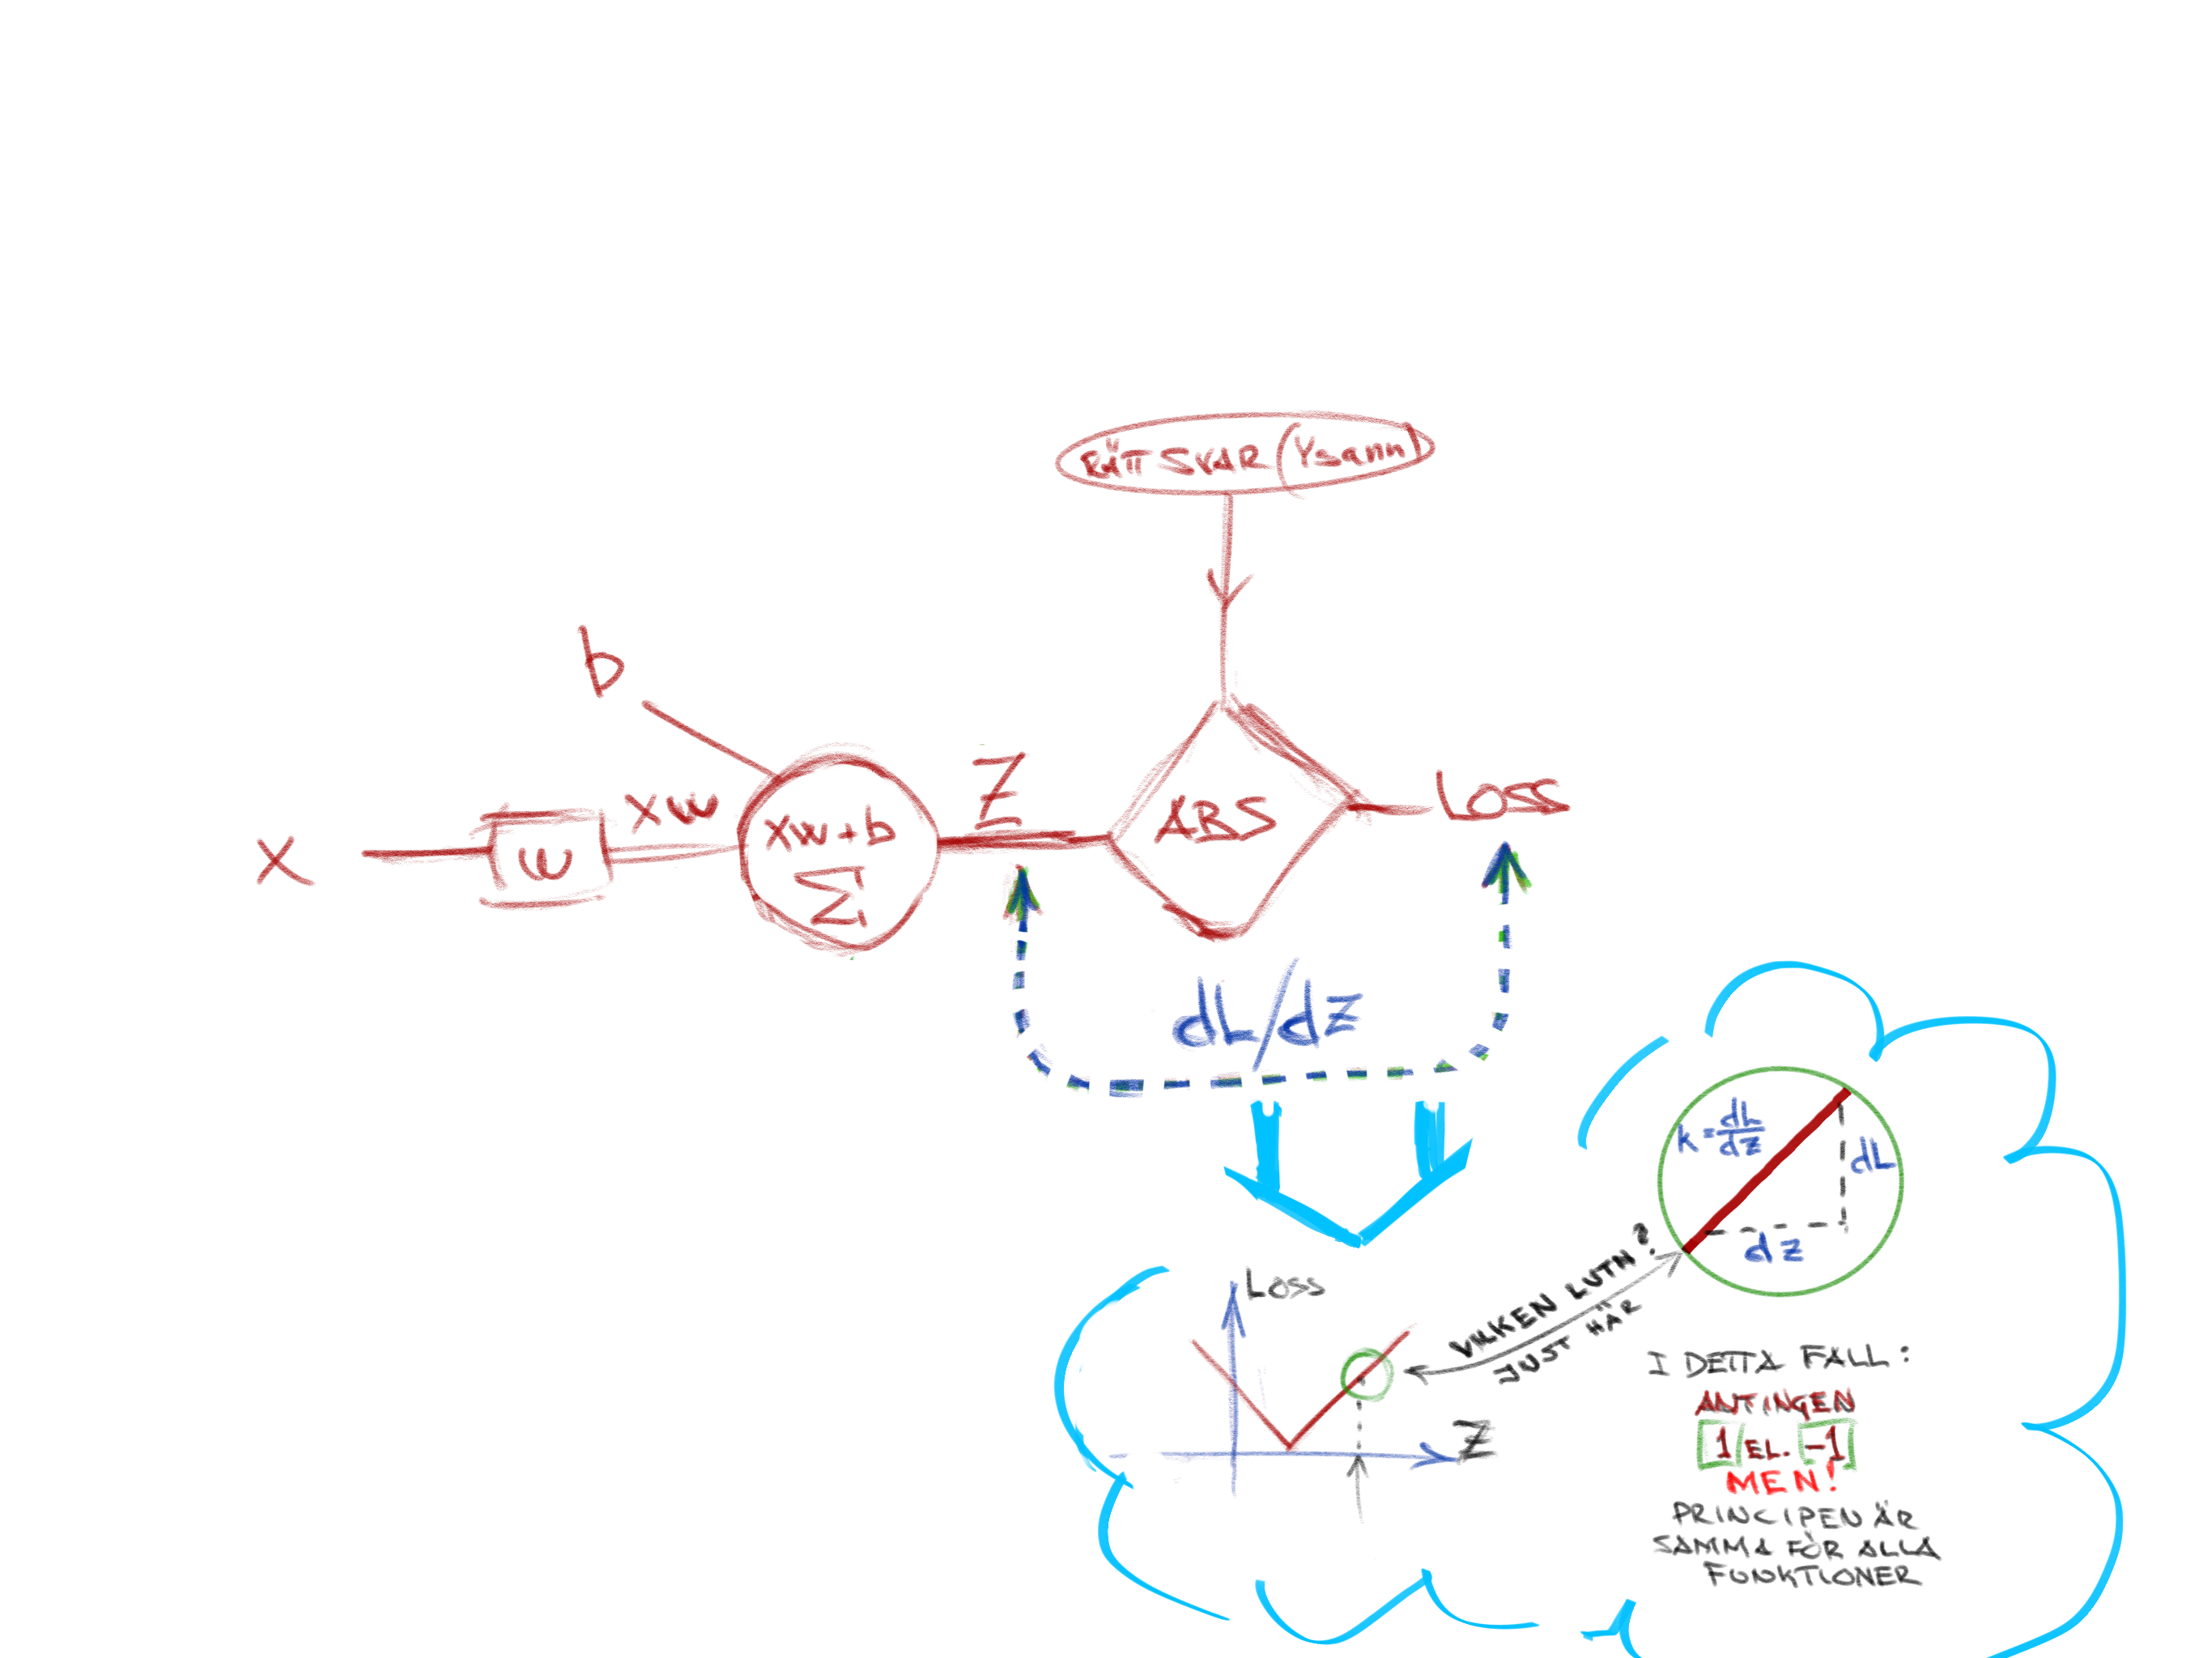 RÄTT SVAR (Ysann)
b
X
w
xw
xw+b
Σ
Z
ABS
Loss
dL/dz
k=dL/dz
dL
dz
VILKEN LUTN?
JUST HÄR
Loss
Z
I DETTA FALL:
ANTINGEN
1 EL. -1
MEN!
PRINCIPEN ÄR
SAMMA FÖR ALLA
FUNKTIONER